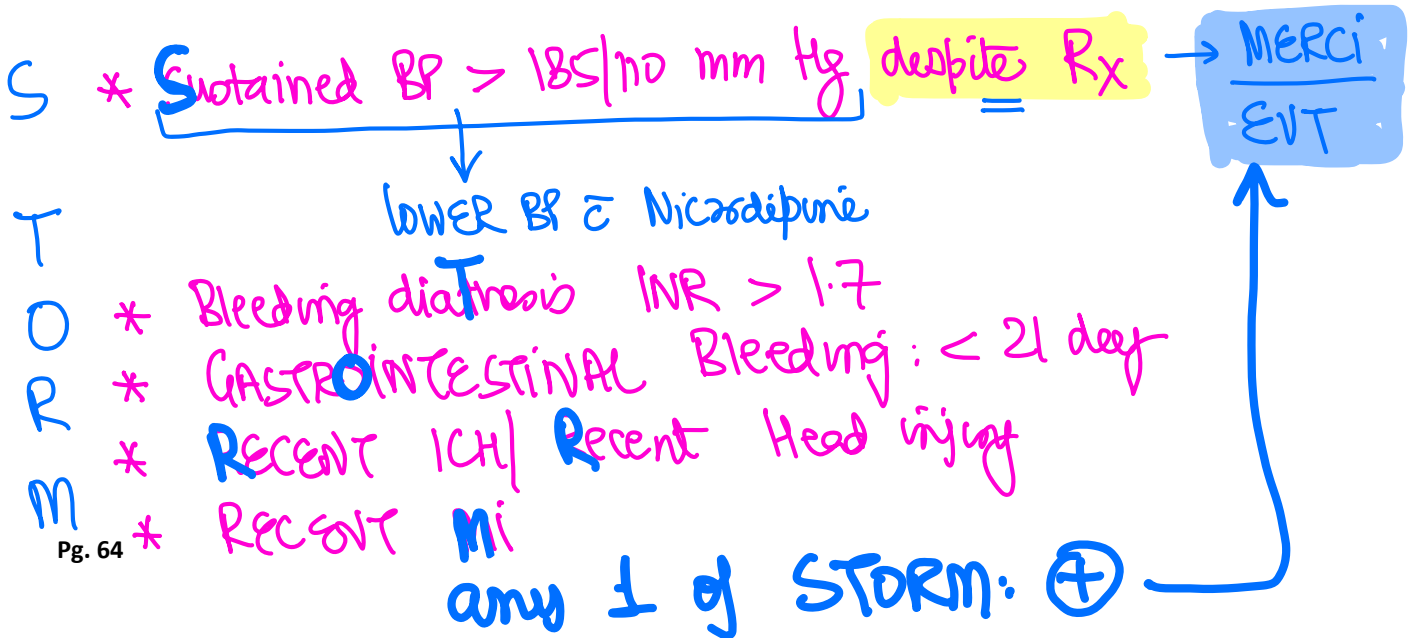 S * Sustained BP > 185/110 mm Hg despite Rx → MERCi
EVT
T lOWER BP c̄ Nicardipine
O * Bleeding diaThesis INR > 1.7
* GASTROINTESTINAL Bleeding: < 21 day
R * RECENT ICH/ Recent Head injury
M * RECENT Mi
Pg. 64
any 1 of STORM: +